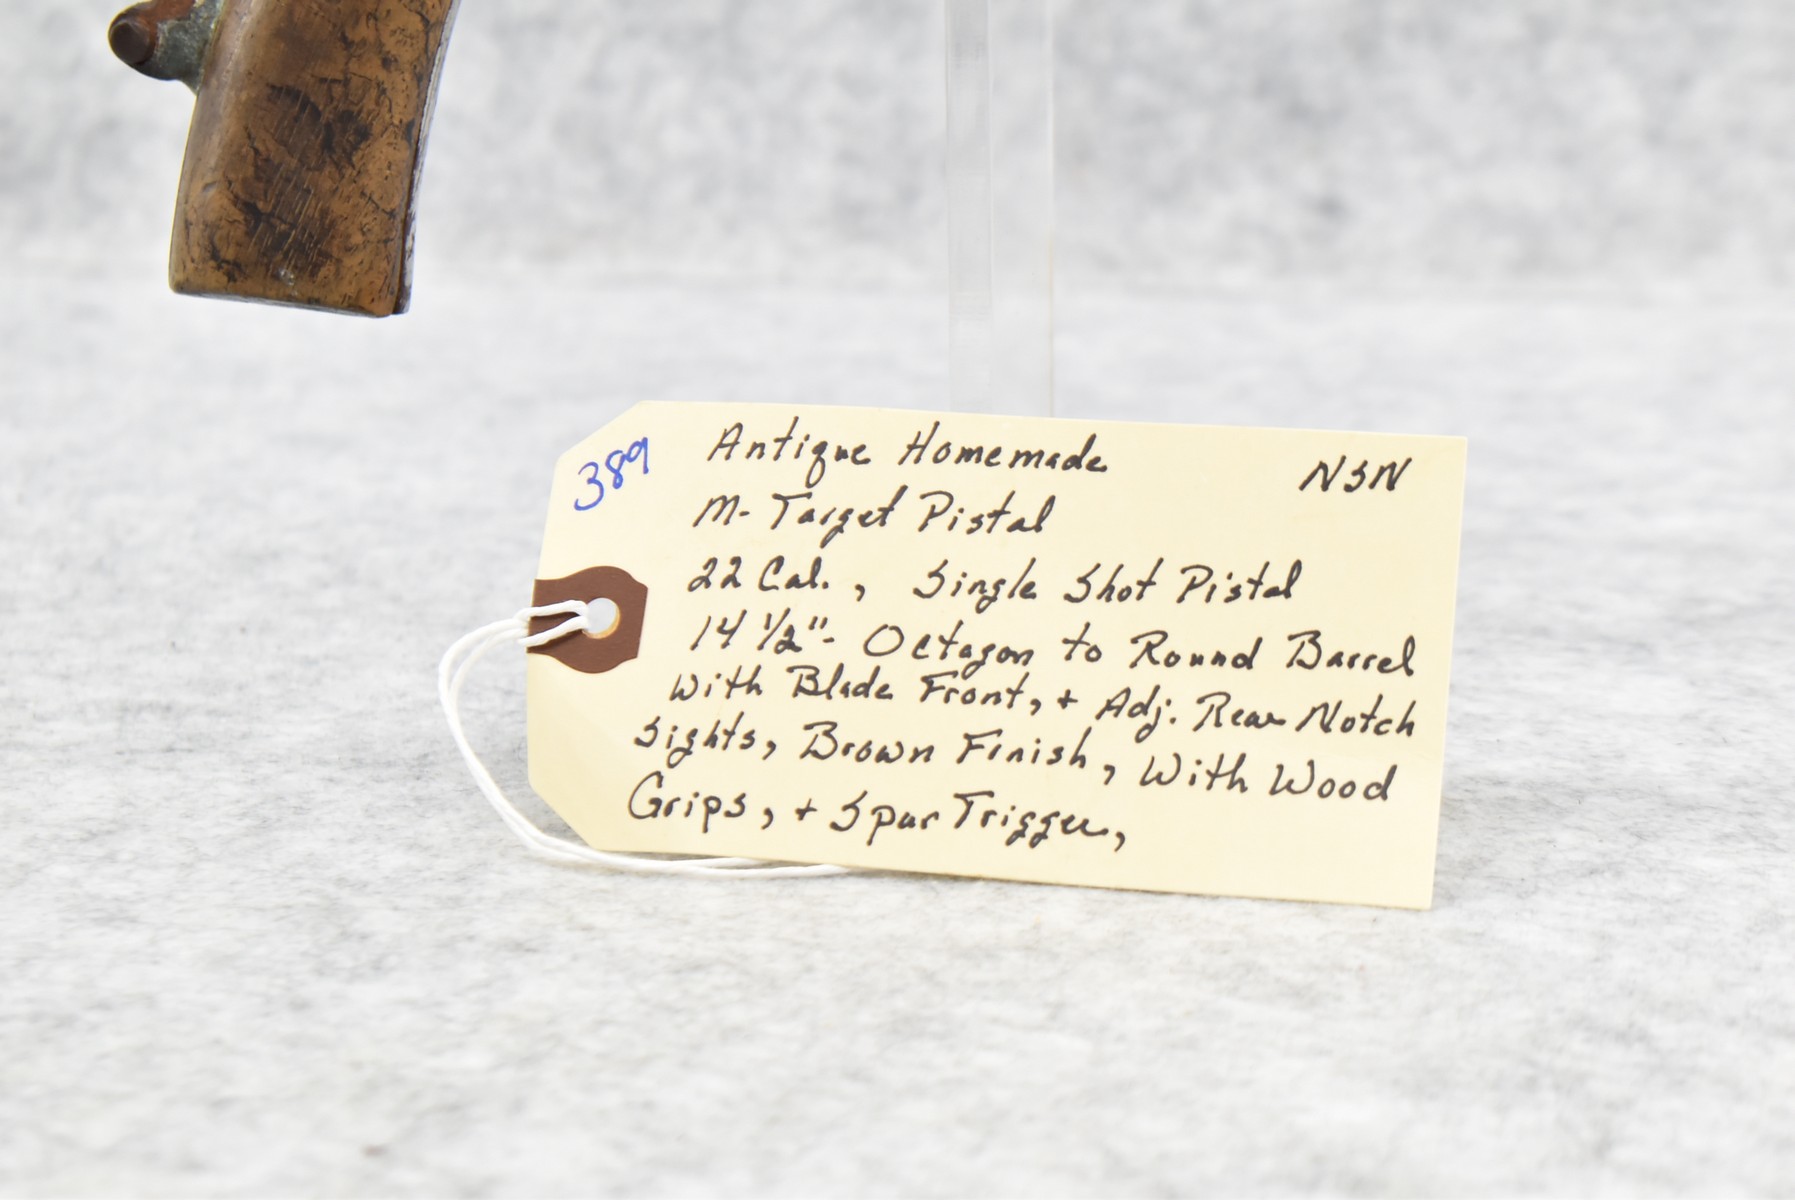 389
Antique Homemade NSN
M- Target Pistal
22 Cal., Single Shot Pistal
14 1/2"- Octagon to Round Barrel
With Blade Front, + Adj. Rear Notch
Sights, Brown Finish, With Wood
Grips, + Spur Trigger,